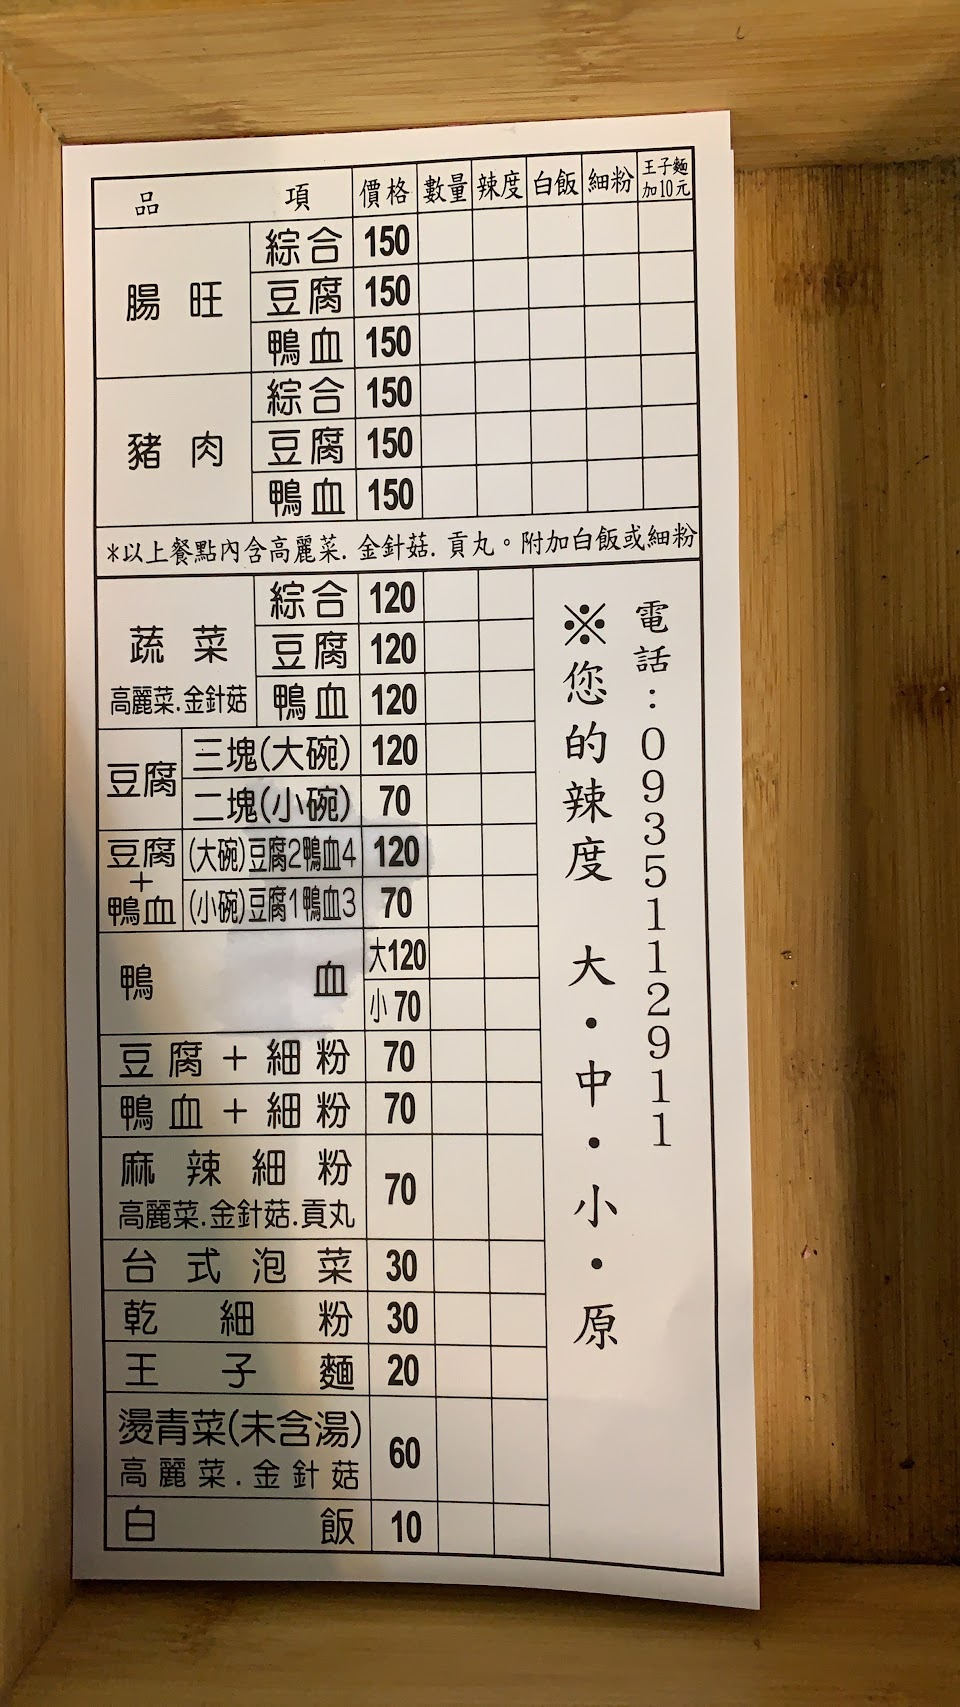 品項 價格 數量 辣度 白飯 細粉 王子麵加10元
腸旺 綜合 150
豆腐 150
鴨血 150
豬肉 綜合 150
豆腐 150
鴨血 150
*以上餐點內含高麗菜.金針菇.貢丸。附加白飯或細粉
蔬菜 高麗菜.金針菇 綜合 120
豆腐 120
鴨血 120
豆腐 三塊(大碗) 120
二塊(小碗) 70
豆腐+鴨血 (大碗)豆腐2鴨血4 120
(小碗)豆腐1鴨血3 70
鴨血 大120
小70
豆腐+細粉 70
鴨血+細粉 70
麻辣細粉 70
高麗菜.金針菇.貢丸
台式泡菜 30
乾細粉 30
王子麵 20
燙青菜(未含湯) 60
高麗菜.金針菇
白飯 10
電話:0935112911
※您的辣度 大・中・小・原